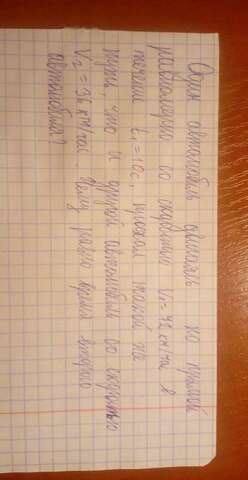 Один автомобиль двигаясь по прямой
равномерно со скоростью V₁ = 72 км/ч, в
течении t₁ = 10 с, прошел такой же
путь, что и другой автомобиль со скоростью
V₂ = 36 км/час. Чему равно время второго
автомобиля?